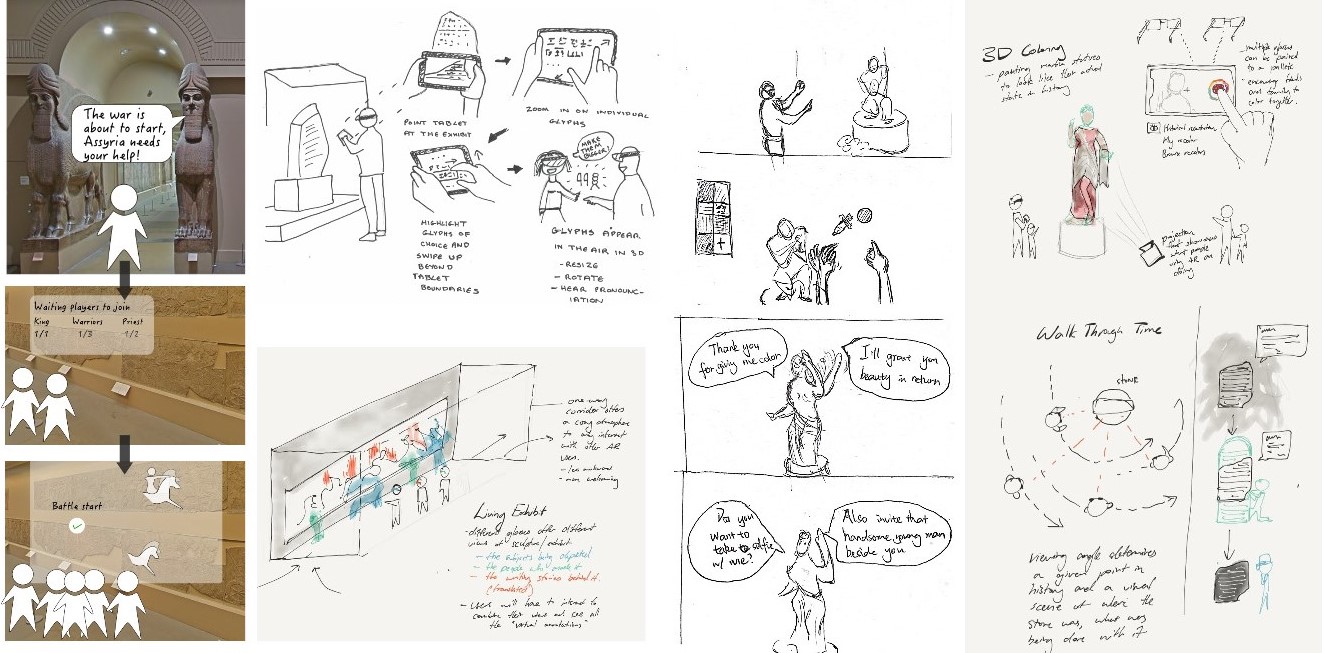 The war is
about to start,
Assyria needs
your help!
Waiting players to join
King Warriors Priest
1/1 1/3 1/2
Battle start
POINT TABLET
AT THE EXHIBIT
ZOOM IN ON INDIVIDUAL
GLYPHS
HIGHLIGHT
GLYPHS OF
CHOICE AND
SWIPE UP
BEYOND
TABLET
BOUNDARIES
MAKE
THEM
BIGGER!
GLYPHS APPEAR
IN THE AIR IN 3D
- RESIZE
- ROTATE
- HEAR PRONUNC-
IATION
one-way
corridor offers
a cozy atmosphere
to only interact
with other AR
users.
- less awkward
- more welcoming
Living Exhibit
- different glasses offer different
views of sculpture/exhibit
- the subjects being depicted
- the people who made it
- the writing stories behind it.
(translated)
- users will have to interact to
combine their views and see all
the "virtual annotations"
Thank you
for giving me color
I'll grant you
beauty in return
Do you
want to
take a selfie
w/ me?
Also invite that
handsome, young man
beside you
3D Coloring
- painting marble statues
to look like their actual
state in history
multiple glasses
can be paired
to a tablet
- encourage friends
and family to
color together.
Historical recoloration
My recolor
Browse recolors
projection
that showcases
what people
using AR are
doing
Walk Through Time
stone
viewing angle determines
a given point in
history and a visual
scene of where the
stone was, what was
being done with it